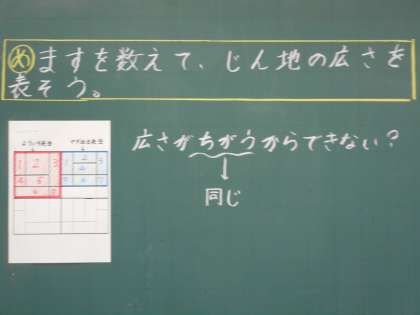 め ますを数えて、じん地の広さを
表そう。
広さがちがうからできない?
同じ
1 2 3
4 5